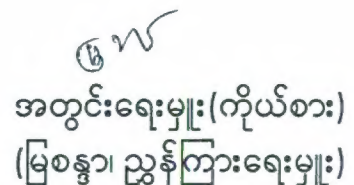 အတွင်းရေးမှူး(ကိုယ်စား)
(မြစန္ဒာ၊ ညွှန်ကြားရေးမှူး)